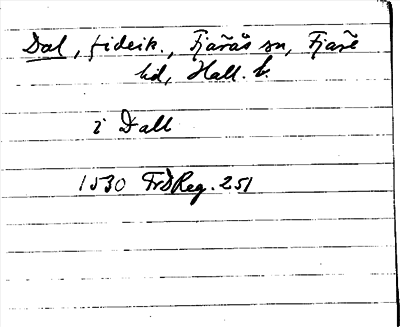 Dal, fideik., Fjärås sn, Fjäre
hd, Hall. l.
i Dall
1530 FrDReg. 251